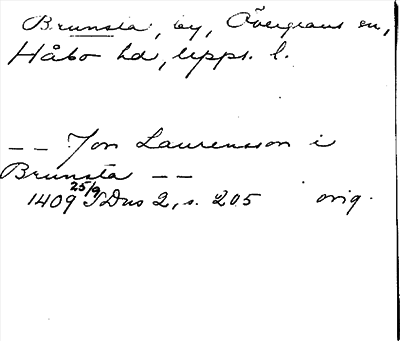 Brunsta, by, Övergrans sn,
Håbo hd, Upps. l.
-- Jon Laurensson i
Brunsta --
1409 25/9 SDns 2, s. 205 orig.